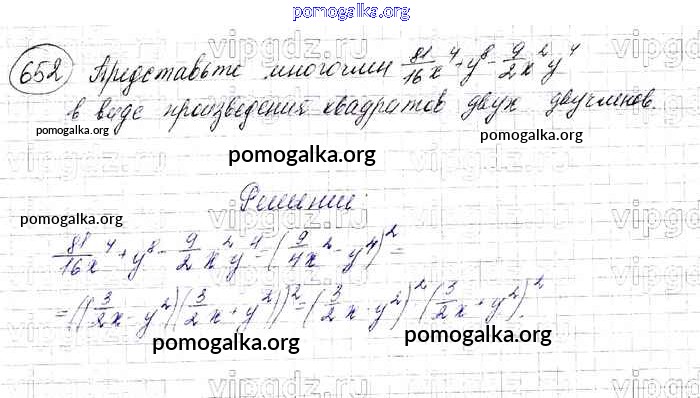 pomogalka.org
652 Представьте многочлен 81/16 x^4 + y^8 - 9/2 x^2 y^4
в виде произведения квадратов двух двучленов.
pomogalka.org
pomogalka.org
pomogalka.org
Решение:
pomogalka.org
81/16 x^4 + y^8 - 9/2 x^2 y^4 = (9/4 x^2 - y^4)^2 =
= ((3/2 x - y^2)(3/2 x + y^2))^2 = (3/2 x - y^2)^2 (3/2 x + y^2)^2.
pomogalka.org
pomogalka.org
vipgdz.ru vipgdz.ru vipgdz.ru